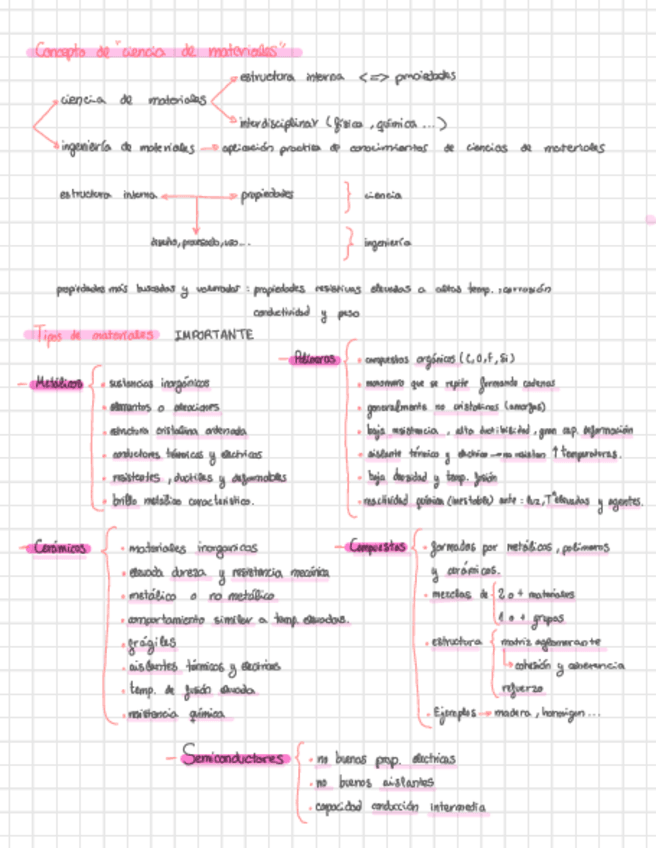 Concepto de "ciencia de materiales"
estructura interna <=> propiedades
ciencia de materiales
interdisciplinar (física, química ...)
ingeniería de materiales → aplicación practica de conocimientos de ciencias de materiales
estructura interna ↔ propiedades } ciencia
diseño, procesado, uso... } ingeniería
propiedades más buscadas y valoradas : propiedades resistivas elevadas a altas temp., corrosión
conductividad y peso
Tipos de materiales IMPORTANTE
- Metálicos
• sustancias inorgánicas
• elementos o aleaciones
• estructura cristalina ordenada
• conductores térmicos y electricos
• resistentes, ductiles y deformables
• brillo metálico característico.
- Polímeros
• compuestos orgánicos (C,O,F,Si)
• monomero que se repite formando cadenas
• generalmente no cristalinos (amorfos)
• baja resistencia, alta ductibilidad, gran cap. deformación
• aislante térmico y eléctrico → no resisten ↑ temperaturas.
• baja densidad y temp. fusión
• reactividad química (inestable) ante: luz, Tª elevadas y agentes.
- Cerámicos
• materiales inorganicos
• elevada dureza y resistencia mecánica
• metálico o no metálico
• comportamiento similar a temp. elevadas.
• frágiles
• aislantes térmicos y electricos
• temp. de fusión elevada
• resistencia química
- Compuestos
• formados por metálicos, polímeros
y cerámicos.
• mezclas de { 2 o + materiales
1 o + grupos
• estructura { matriz aglomerante
↳ cohesión y adherencia
refuerzo
• Ejemplos → madera, hormigon...
- Semiconductores
• no buenas prop. electricas
• no buenos aislantes
• capacidad conducción intermedia